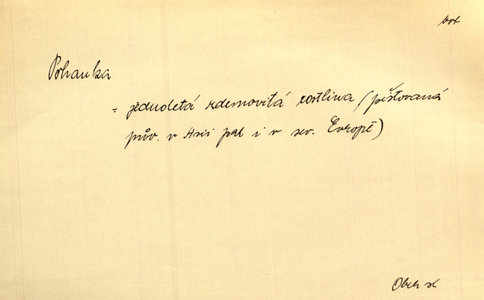 bot
Pohanka
= jednoletá rdesnovitá rostlina (pěstovaná
pův. v Asii pak i v sev. Evropě)